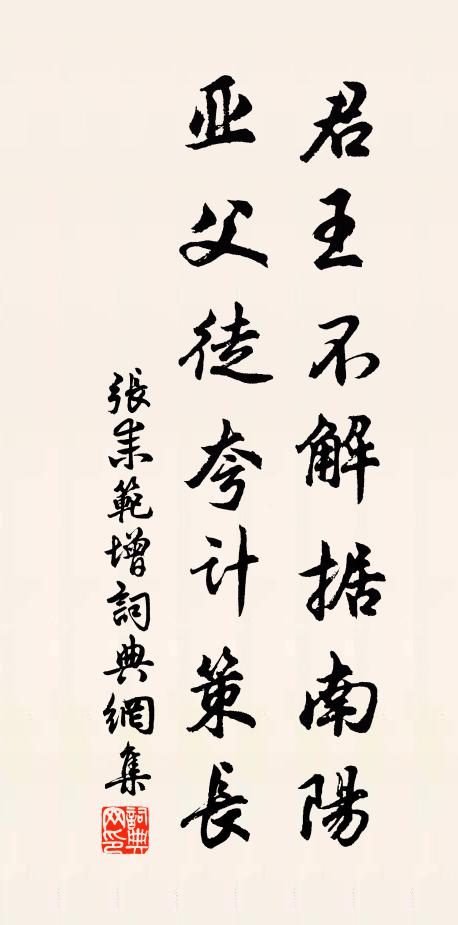 君王不解据南陽
亚父徒夸计策長
張耒範增詞典網集
詞典網印